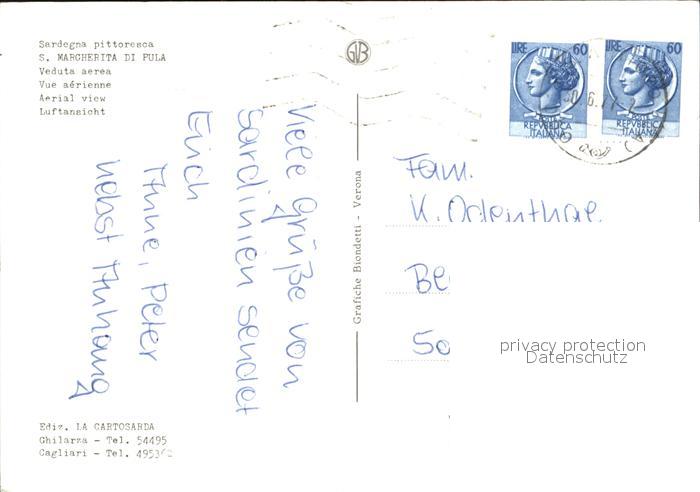 Sardegna pittoresca
S. MARGHERITA DI PULA
Veduta aerea
Vue aérienne
Aerial view
Luftansicht
GB
LIRE 60
POSTE
REPVBBLICA
ITALIANA
LIRE 60
POSTE
REPVBBLICA
ITALIANA
Viele Grüße von
Sardinien sendet
Euch
Anne, Peter
nebst Anhang
Grafiche Biondetti - Verona
Fam.
K. Ortenthal
Be
So
privacy protection
Datenschutz
Ediz. LA CARTOSARDA
Ghilarza - Tel. 54495
Cagliari - Tel. 495362